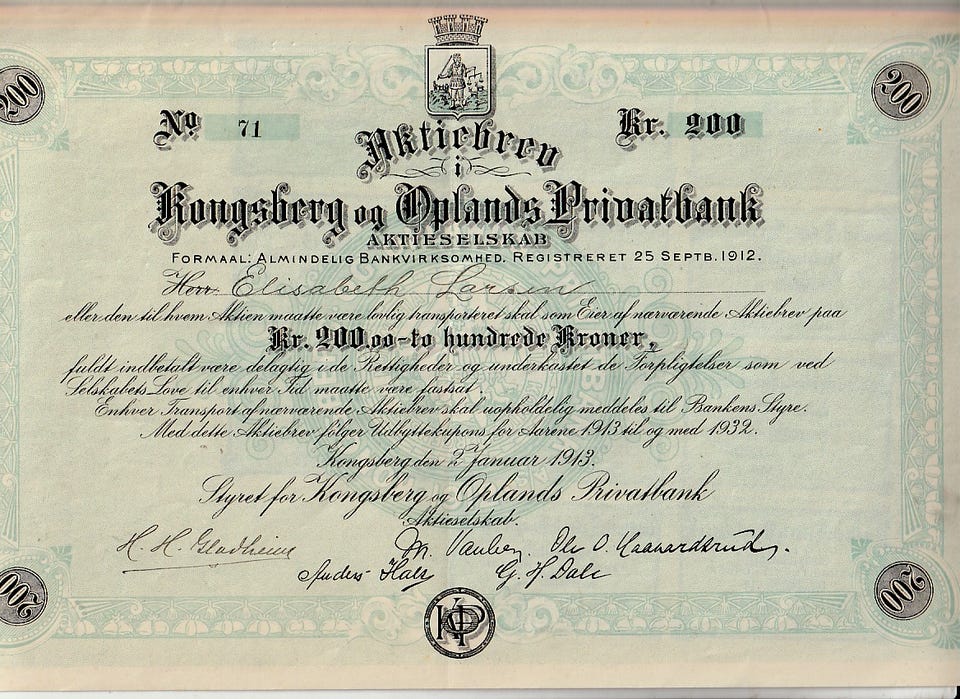 200
200
No 71
Kr. 200
Aktiebrev
i
Kongsberg og Oplands Privatbank
AKTIESELSKAB
FORMAAL: ALMINDELIG BANKVIRKSOMHED. REGISTRERET 25 SEPTB. 1912.
Herr Elisabeth Larsen
eller den til hvem Aktien maatte være lovlig transporteret skal som Eier af nærværende Aktiebrev paa
Kr. 200.00-to hundrede Kroner,
fuldt indbetalt være delagtig i de Rettigheder og underkastet de Forpligtelser som ved
Selskabets Love til enhver Tid maatte være fastsat.
Enhver Transport af nærværende Aktiebrev skal uopholdelig meddeles til Bankens Styre.
Med dette Aktiebrev følger Udbyttekupons for Aarene 1913 til og med 1932.
Kongsberg den 2 Januar 1913.
Styret for Kongsberg og Oplands Privatbank
Aktieselskab.
H. H. Gladheim
Ole O.
Anders
G. H. Dale
200
KOP
200